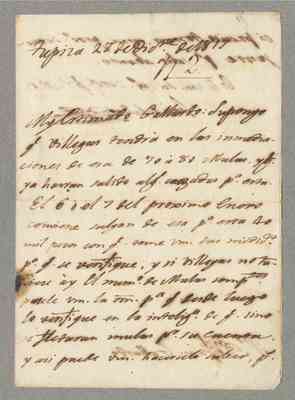 Tupiza 27 de Dic.re de 1817
Mi estimado Gallardo: Supongo
q.e Villegas tendra en las inmedia-
ciones de esa de 70 á 80 Mulas, y q.e
ya havran salido alg.s cargadas p.a esta.
El 6 ó el 7 del proximo Enero
conviene salgan de esa p.a esta 40
mil r.s con q.e tome vm. sus medid.s
p.a q.e se verifique, y si Villegas no tu-
viere ay el num.o de Mulas
puede vm. p.a q.e desde luego
lo verifique en la intelig.a de q.e sino
se fletaran mulas p.r su cuenta
y asi puede vm. hacerselo saber, q.e